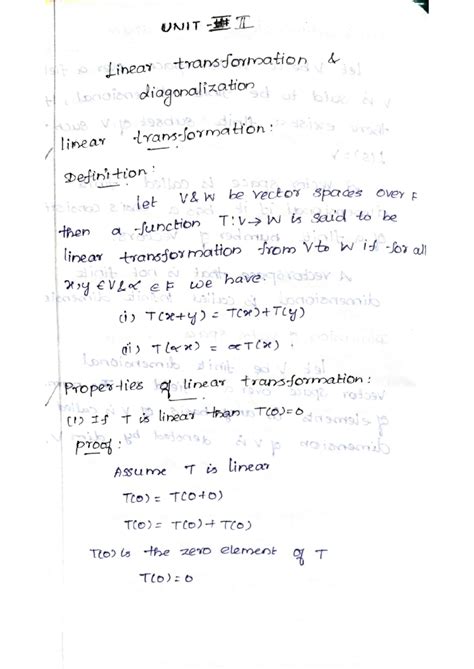 UNIT - II
Linear transformation &
diagonalization
linear transformation:
Definition:
let V & W be vector spaces over F
then a function T: V → W is said to be
linear transformation from V to W if for all
x, y ∈ V & α ∈ F we have.
(i) T(x+y) = T(x)+T(y)
(ii) T(αx) = αT(x).
Properties of linear transformation:
(1) If T is linear than T(0)=0
proof:
Assume T is linear
T(0) = T(0+0)
T(0) = T(0)+T(0)
T(0) is the zero element of T
T(0)=0